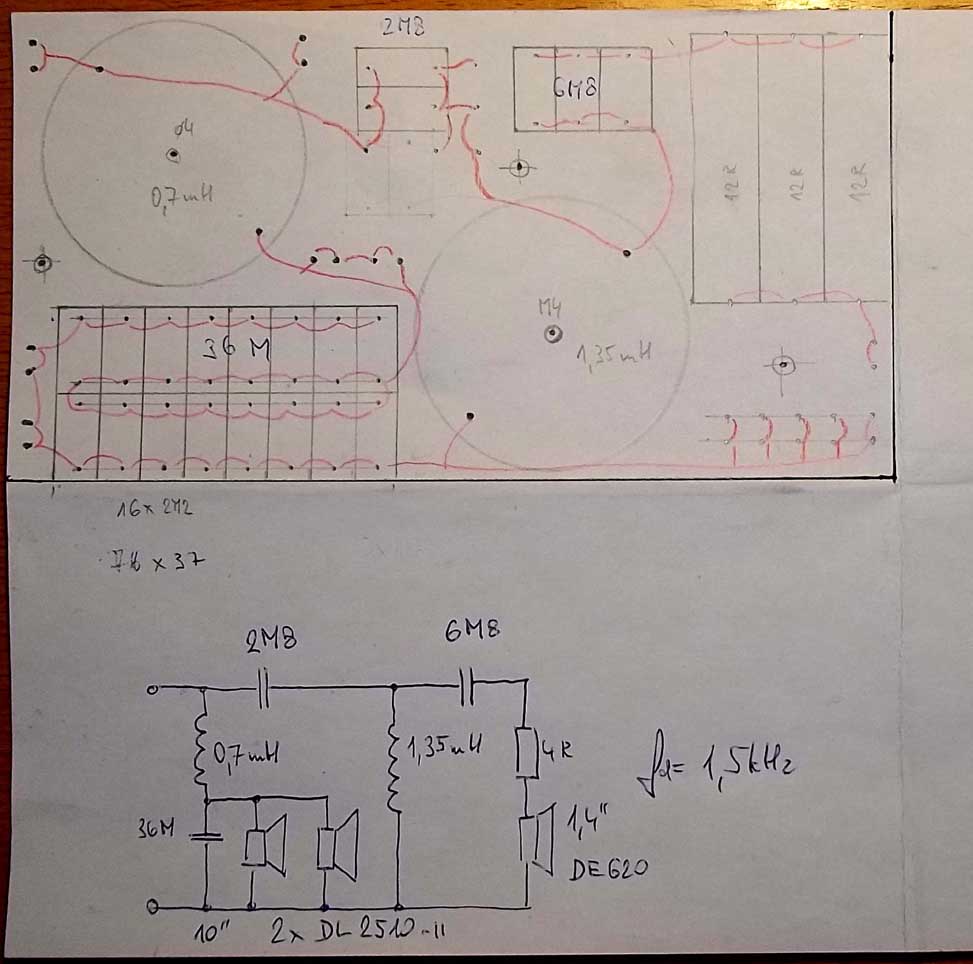 2M8
6M8
ø4
0,7mH
12R
12R
12R
M4
1,35mH
36M
16x2M2
x 37
2M8
6M8
0,7mH
1,35mH
4R
fd= 1,5kHz
36M
1,4"
DE620
10"
2x DL2510-II